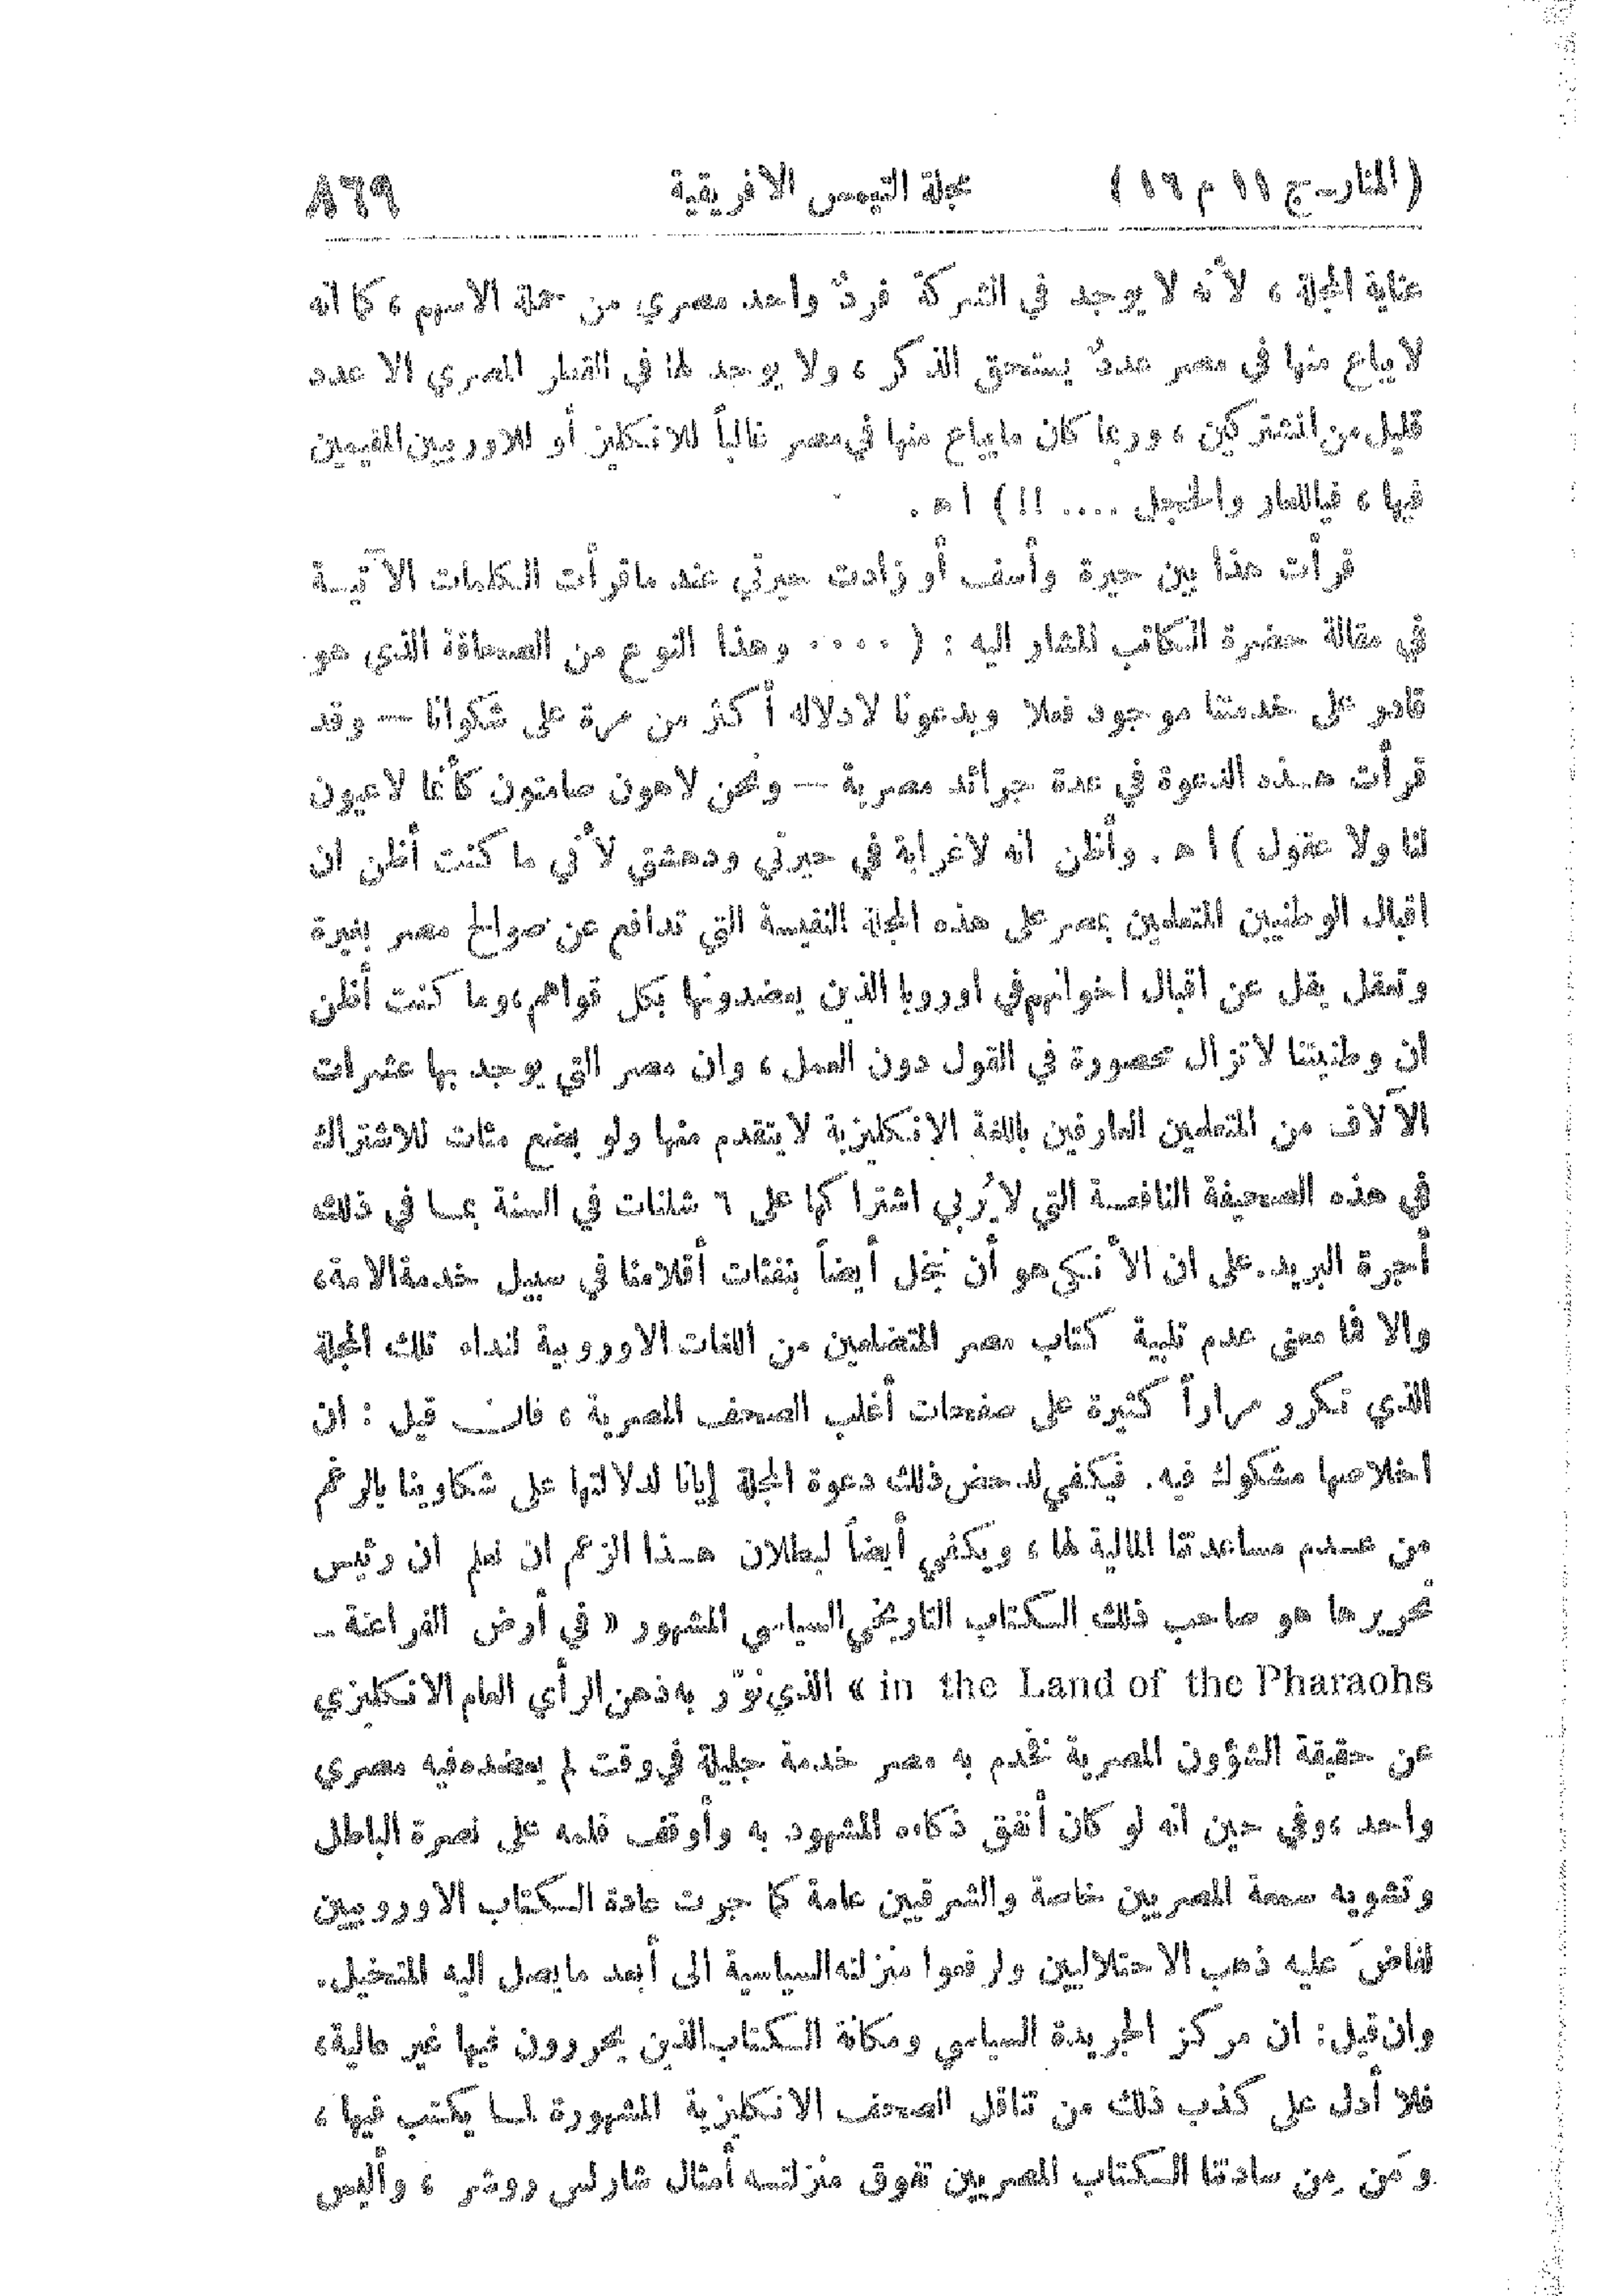 ( المنار ـ ج ١١ م ١٦ ) مجلة التيمس الافريقية ٨٦٩
عناية المجلة ، لأنه لا يوجد في الشركة فردٌ واحد مصري من حملة الاسهم ، كما انه
لا يباع منها في مصر عددٌ يستحق الذكر ، ولا يوجد لها في القطر المصري الا عدد
قليل من المشتركين ، وربما كان ما يباع منها في مصر غالباً للانكليز أو للاوربيين المقيمين
فيها ، فياللعار والخجل .... !! ) ا ه .
قرأت هذا بين حيرة وأسف أو زادت حيرتي عند ما قرأت الكلمات الآتيـة
في مقالة حضرة الكاتب المشار اليه : ( .... وهذا النوع من الصحافة الذي هو
قادر على خدمتنا موجود فعلا ويدعونا لادلاله أكثر من مرة على شكوانا — وقد
قرأت هـذه الدعوة في عدة جرائد مصرية — ونحن لاهون صامتون كأنما لا عيون
لنا ولا عقول ) ا ه . وأظن انه لا غرابة في حيرتي ودهشتي لأني ما كنت أظن ان
اقبال الوطنيين المتعلمين بمصر على هذه المجلة النفيسة التي تدافع عن صوالح مصر بغيرة
وتعقل يقل عن اقبال اخوانهم في اوروبا الذين يعضدونها بكل قواهم، وما كنت أظن
ان وطنيتنا لا تزال محصورة في القول دون العمل ، وان مصر التي يوجد بها عشرات
الآلاف من المتعلمين العارفين باللغة الإنكليزية لا يتقدم منها ولو بضع مئات للاشتراك
في هذه الصحيفة النافعـة التي لا يُربي اشتراكها على ٦ شلنات في السنة بمـا في ذلك
أجرة البريد. على ان الأنكى هو أن نبخل أيضاً بنفثات أقلامنا في سبيل خدمة الامة،
والا فما معنى عدم تلبية كتاب مصر المتضلعين من اللغات الاوروبية لنداء تلك المجلة
الذي تكرر مراراً كثيرة على صفحات أغلب الصحف المصرية ، فان قيل : ان
اخلاصها مشكوك فيه . فيكفي لدحض ذلك دعوة المجلة إيانا لدلالتها على شكاوينا بالرغم
من عـدم مساعدتنا المالية لها ، ويكفي أيضاً لبطلان هـذا الزعم ان نعلم ان رئيس
تحريرها هو صاحب ذلك الكتاب التاريخي السياسي المشهور « في أرض الفراعنة ـ
in the Land of the Pharaohs » الذي نوّر به ذهن الرأي العام الانكليزي
عن حقيقة الشؤون المصرية فخدم به مصر خدمة جليلة في وقت لم يعضده فيه مصري
واحد ، وفي حين انه لو كان أنفق ذكاءه المشهود به وأوقف قلمه على نصرة الباطل
وتشويه سمعة المصريين خاصة والشرقيين عامة كما جرت عادة الكتاب الاوروبيين
لفاضَ عليه ذهب الاحتلاليين ولرفعوا منزلته السياسية الى أبعد ما يصل اليه المتخيل.
وان قيل : ان مركز الجريدة السياسي ومكانة الكتاب الذين يحررون فيها غير عالية ،
فلا أدل على كذب ذلك من تناقل الصحف الانكليزية المشهورة لمـا يكتب فيها ،
ومَن مِن سادتنا الكتاب المصريين تفوق منزلتـه أمثال شارلس روشر ، وأليس